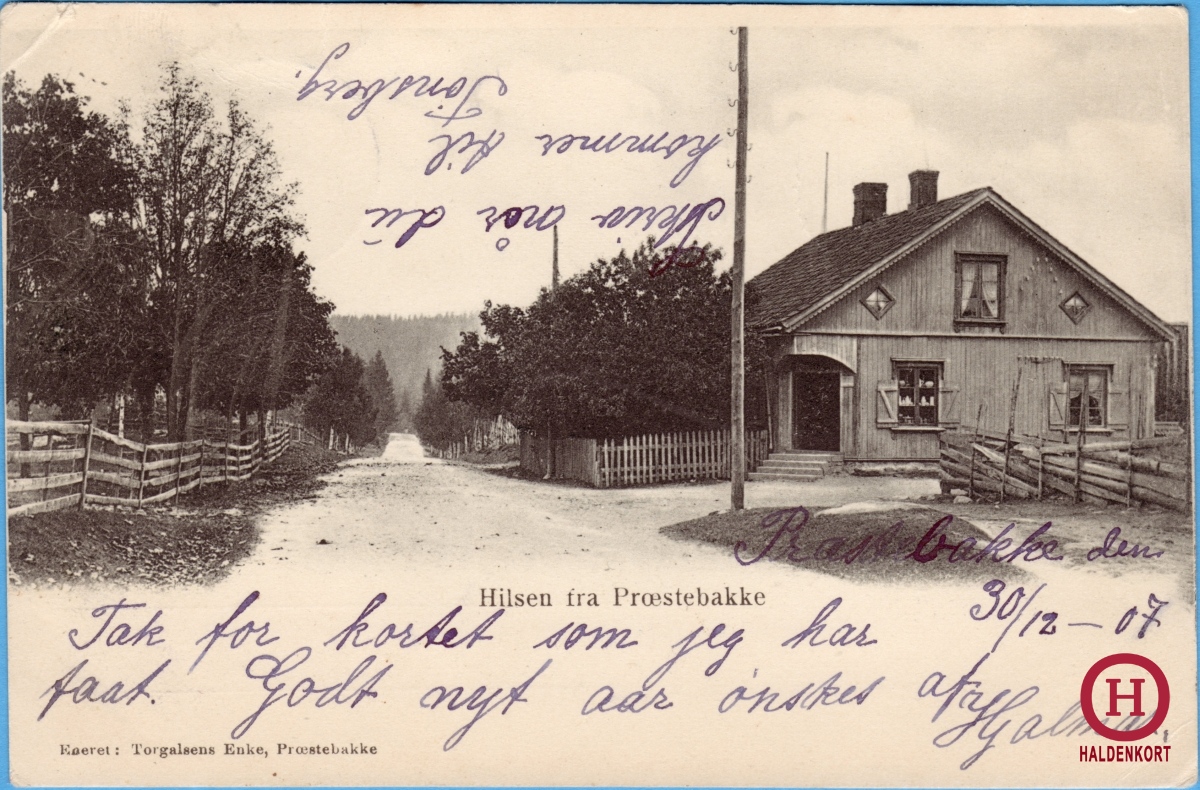 Skriv når du
kommer til
Tønsberg.
Præstebakke den
30/12 – 07
Hilsen fra Præstebakke
Tak for kortet som jeg har
faat. Godt nyt aar ønskes af Hjalmar.
Eneret: Torgalsens Enke, Præstebakke
H
HALDENKORT